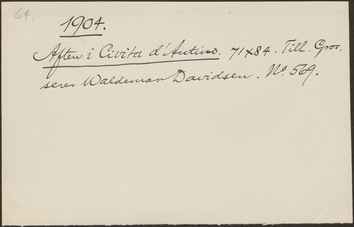 64.
1904.
Aften i Civita d'Antino. 71×84. Till. Gros-
serer Waldemar Davidsen. No. 569.